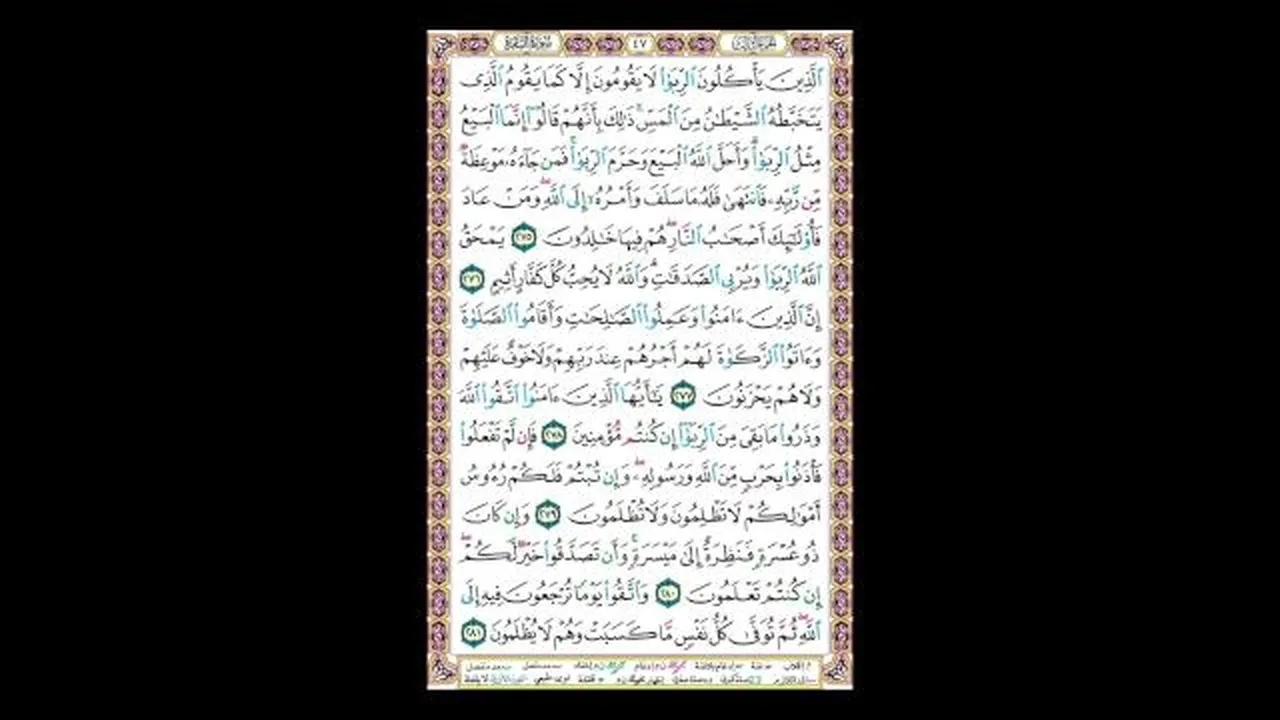 سورة البقرة ٤٧ الجزء الثالث
ٱلَّذِينَ يَأۡكُلُونَ ٱلرِّبَوٰاْ لَا يَقُومُونَ إِلَّا كَمَا يَقُومُ ٱلَّذِى
يَتَخَبَّطُهُ ٱلشَّيۡطَٰنُ مِنَ ٱلۡمَسِّۚ ذَٰلِكَ بِأَنَّهُمۡ قَالُوٓاْ إِنَّمَا ٱلۡبَيۡعُ
مِثۡلُ ٱلرِّبَوٰاْۗ وَأَحَلَّ ٱللَّهُ ٱلۡبَيۡعَ وَحَرَّمَ ٱلرِّبَوٰاْۚ فَمَن جَآءَهُۥ مَوۡعِظَةٌ
مِّن رَّبِّهِۦ فَٱنتَهَىٰ فَلَهُۥ مَا سَلَفَ وَأَمۡرُهُۥٓ إِلَى ٱللَّهِۖ وَمَنۡ عَادَ
فَأُوْلَٰٓئِكَ أَصۡحَٰبُ ٱلنَّارِۖ هُمۡ فِيهَا خَٰلِدُونَ ٢٧٥ يَمۡحَقُ
ٱللَّهُ ٱلرِّبَوٰاْ وَيُرۡبِى ٱلصَّدَقَٰتِۗ وَٱللَّهُ لَا يُحِبُّ كُلَّ كَفَّارٍ أَثِيمٍ ٢٧٦
إِنَّ ٱلَّذِينَ ءَامَنُواْ وَعَمِلُواْ ٱلصَّٰلِحَٰتِ وَأَقَامُواْ ٱلصَّلَوٰةَ
وَءَاتَوُاْ ٱلزَّكَوٰةَ لَهُمۡ أَجۡرُهُمۡ عِندَ رَبِّهِمۡ وَلَا خَوۡفٌ عَلَيۡهِمۡ
وَلَا هُمۡ يَحۡزَنُونَ ٢٧٧ يَٰٓأَيُّهَا ٱلَّذِينَ ءَامَنُواْ ٱتَّقُواْ ٱللَّهَ
وَذَرُواْ مَا بَقِىَ مِنَ ٱلرِّبَوٰٓاْ إِن كُنتُم مُّؤۡمِنِينَ ٢٧٨ فَإِن لَّمۡ تَفۡعَلُواْ
فَأۡذَنُواْ بِحَرۡبٍ مِّنَ ٱللَّهِ وَرَسُولِهِۦۖ وَإِن تُبۡتُمۡ فَلَكُمۡ رُءُوسُ
أَمۡوَٰلِكُمۡ لَا تَظۡلِمُونَ وَلَا تُظۡلَمُونَ ٢٧٩ وَإِن كَانَ
ذُو عُسۡرَةٍ فَنَظِرَةٌ إِلَىٰ مَيۡسَرَةٍۚ وَأَن تَصَدَّقُواْ خَيۡرٌ لَّكُمۡۖ
إِن كُنتُمۡ تَعۡلَمُونَ ٢٨٠ وَٱتَّقُواْ يَوۡمًا تُرۡجَعُونَ فِيهِ إِلَى
ٱللَّهِۖ ثُمَّ تُوَفَّىٰ كُلُّ نَفۡسٍ مَّا كَسَبَتۡ وَهُمۡ لَا يُظۡلَمُونَ ٢٨١